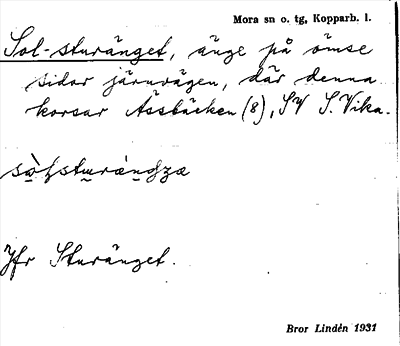 Mora sn o. tg, Kopparb. l.
Sol-sturänget, änge på ömse
sidor järnvägen, där denna
korsar Assbäcken (8), SV S. Vika.
Jfr Sturänget.
Bror Lindén 1931